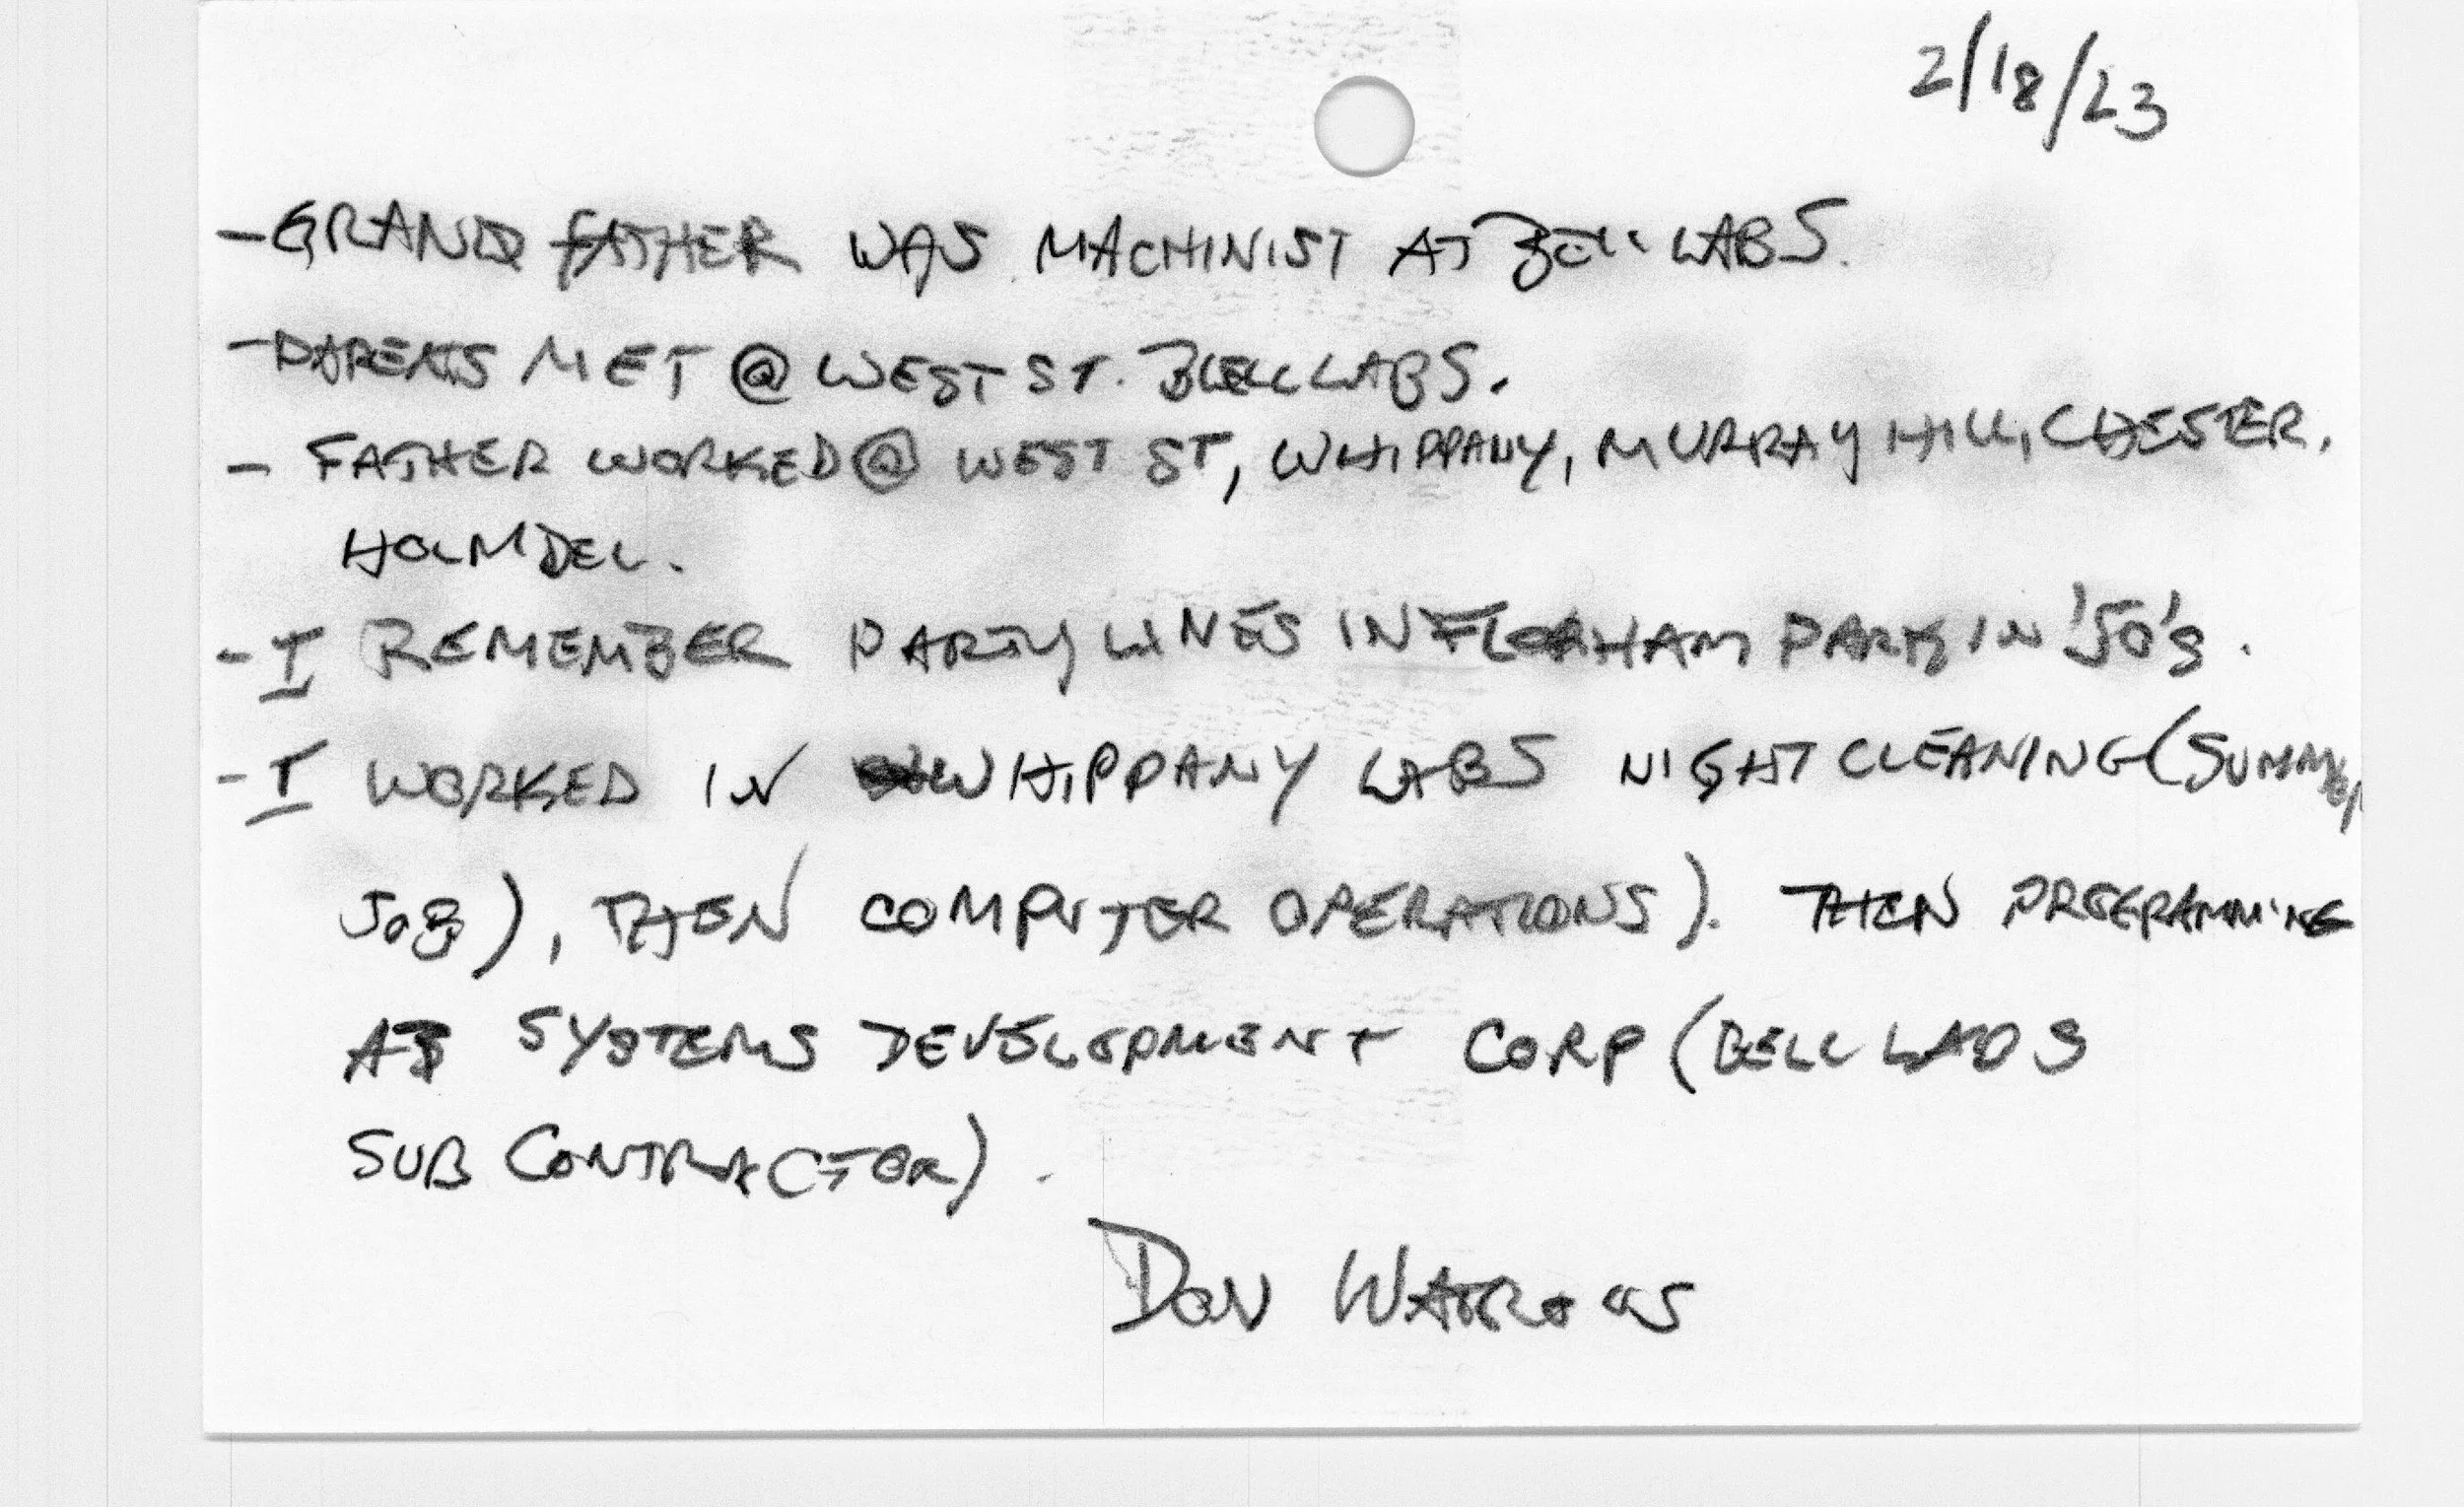 2/18/23
- GRAND FATHER WAS MACHINIST AT BELL LABS.
- PARENTS MET @ WEST ST. BELL LABS.
- FATHER WORKED @ WEST ST, WHIPPANY, MURRAY HILL, CHESTER,
HOLMDEL.
- I REMEMBER PARTY LINES IN FLORHAM PARK IN '50's.
- I WORKED IN WHIPPANY LABS NIGHT CLEANING (SUMMER
JOB), THEN COMPUTER OPERATIONS). THEN PROGRAMMING
AT SYSTEMS DEVELOPMENT CORP (BELL LABS
SUB CONTRACTOR).
DON WATROUS